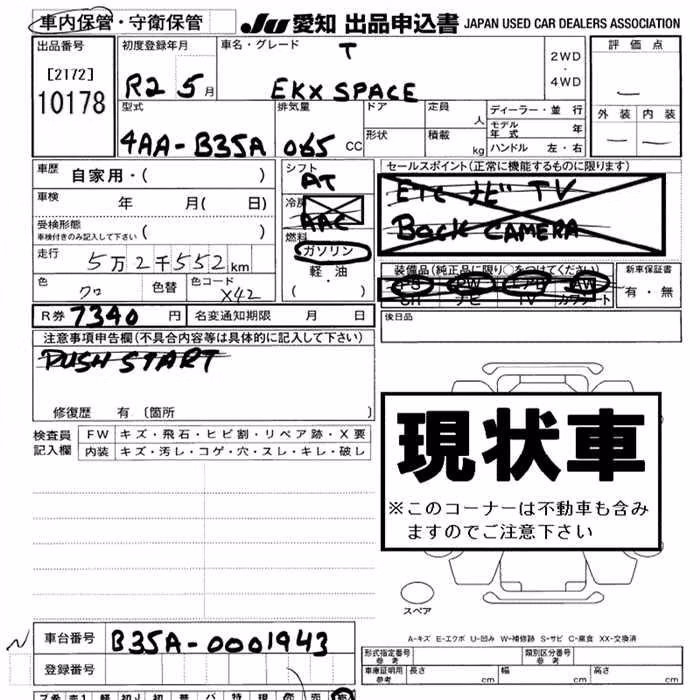 車内保管・守衛保管 JU 愛知 出品申込書 JAPAN USED CAR DEALERS ASSOCIATION
出品番号 初度登録年月 車名・グレード T 2WD・4WD 評価点
[2172] R2 5月 EKX SPACE —
10178 型式 排気量 ドア 定員 人 ディーラー・並行 外装 内装
4AA-B35A 065 CC 形状 積載 kg モデル年式 年 — —
ハンドル 左・右
車歴 自家用・( ) シフト AT セールスポイント(正常に機能するものに限ります)
車検 年 月( 日) 冷房 AAC ETC ナビ TV
受検形態 ( ) BACK CAMERA
車検付きのみ記入して下さい
燃料 ガソリン
走行 5万2千552km 軽・油 装備品(純正品に限り○をつけてください) 新車保証書
色 クロ 色替 色コード X42 ( ・ ) PS PW エアB AW 有・無
SR ナビ TV カワシート
R券 7340 円 名変通知期限 月 日 後日品
注意事項申告欄(不具合内容等は具体的に記入して下さい)
PUSH START
修復歴 有 〔箇所 〕
検査員 FW キズ・飛石・ヒビ割・リペア跡・X要
記入欄 内装 キズ・汚レ・コゲ・穴・スレ・キレ・破レ
現状車
※このコーナーは不動車も含み
ますのでご注意下さい
スペア
A-キズ E-エクボ U-凹み W-補修跡 S-サビ C-腐食 XX-交換済
車台番号 B35A-0001943
登録番号
形式指定番号 参考 類別区分番号 参考
車庫証明用 参考 長さ cm 幅 cm 高さ cm